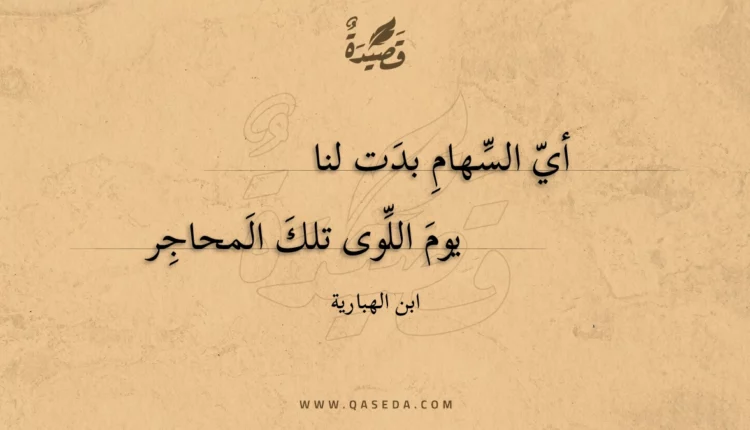 قَصِيْدَةٌ
أيّ السِّهامِ بدَت لنا
يومَ اللِّوى تلكَ الَمحاجِر
ابن الهبارية
WWW.QASEDA.COM